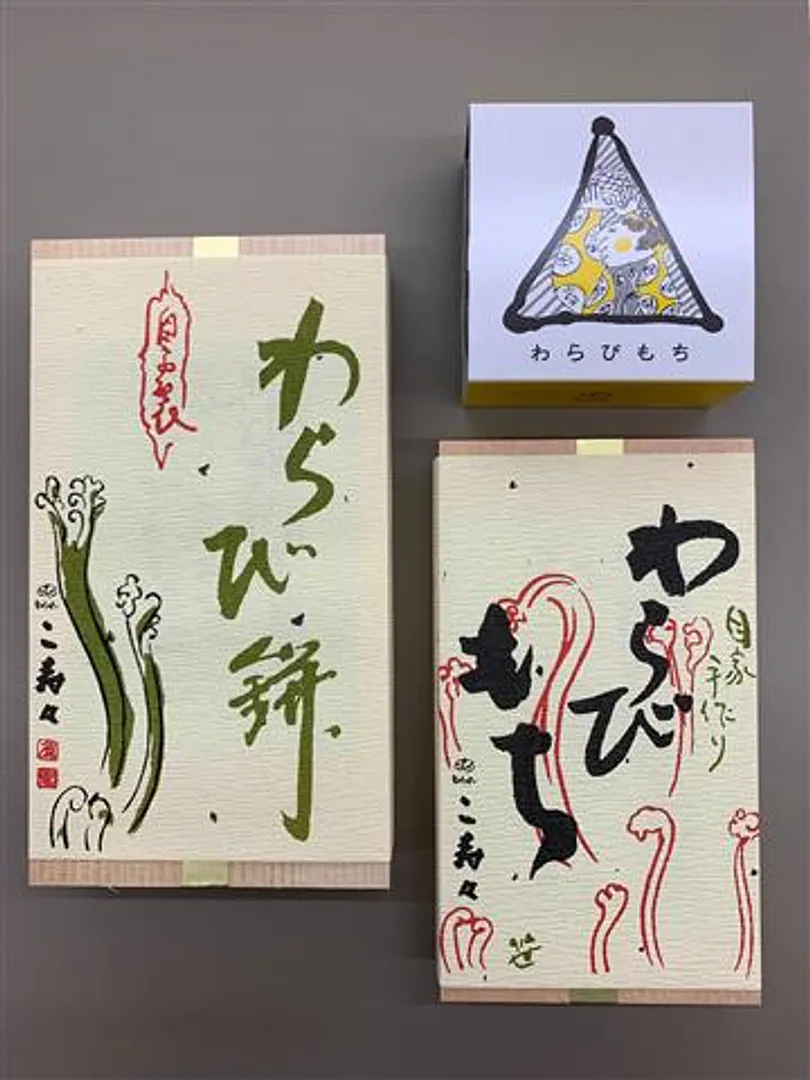 わらび餅
自家製
こ寿々
わらびもち
わらび
もち
自家
手作り
こ寿々
笹